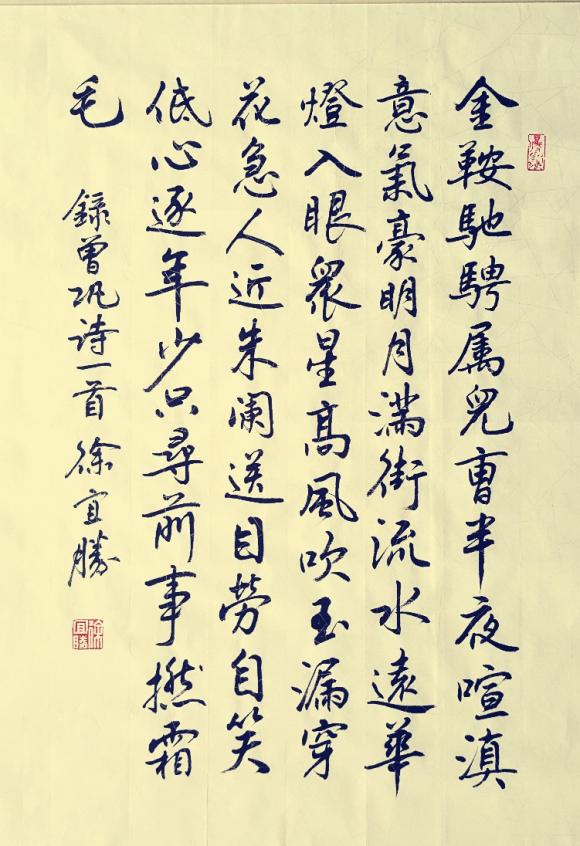 金鞍馳騁属兒曹半夜喧滇
意氣豪明月滿街流水遠華
燈入眼眾星高風吹玉漏穿
花急人近朱瀾送目劳自笑
低心逐年少只尋前事撚霜
毛
錄曾巩诗一首 徐宜勝
徐宜勝